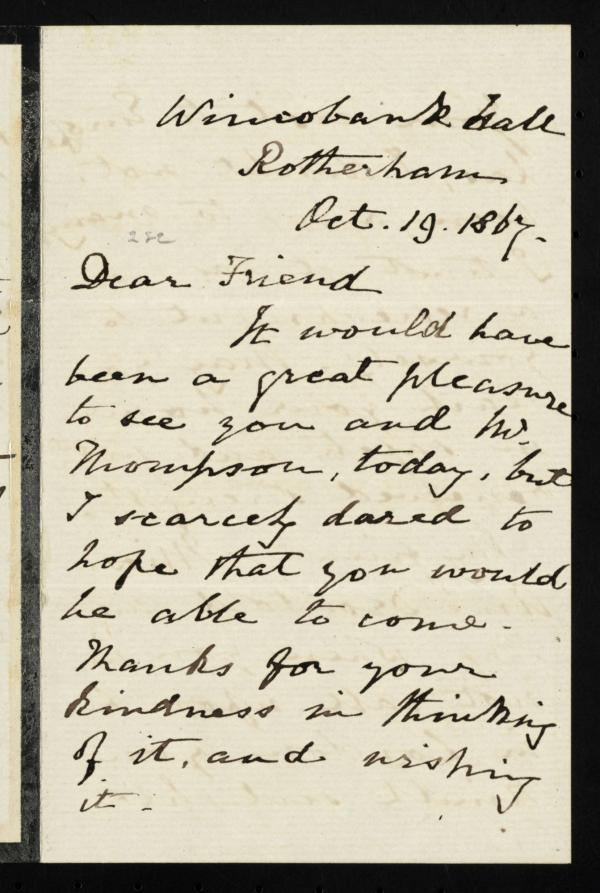 Wincobank Hall
Rotherham
Oct. 19. 1867.
Dear Friend
It would have
been a great pleasure
to see you and Mr.
Thompson, today, but
I scarcely dared to
hope that you would
be able to come.
Thanks for your
kindness in thinking
of it, and wishing
it.